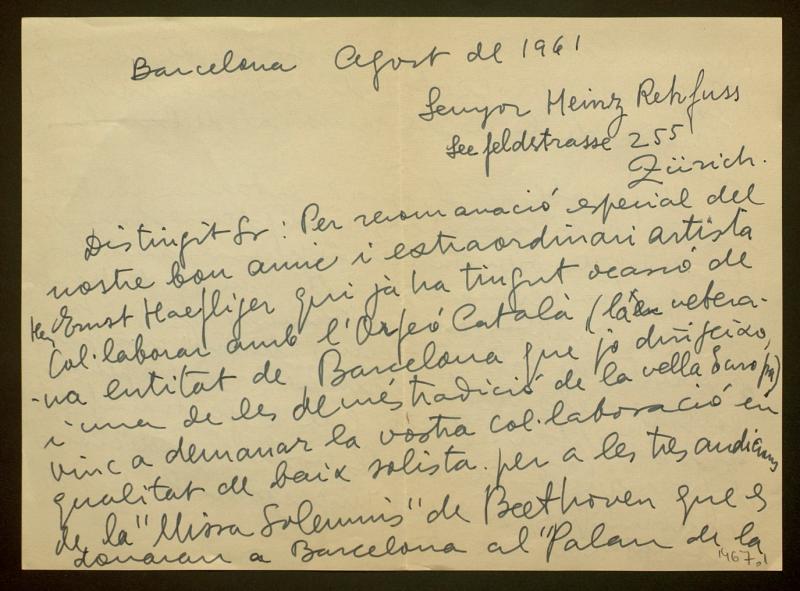 Barcelona Agost de 1961
Senyor Heinz Rehfuss
Seefeldstrasse 255
Zürich.
Distingit Sr: Per recomanació especial del
nostre bon amic i extraordinari artista
Her Ernst Haefliger qui jà ha tingut ocasió de
Col·laborar amb l'Orfeó Català (la vetera-
-na entitat de Barcelona que jo dirigeixo,
i una de les de més tradició de la vella Europa)
vinc a demanar la vostra col·laboració en
qualitat de baix solista per a les tres audicions
de la "Missa Solemnis" de Beethoven que es
donaran a Barcelona al "Palau de la
1967.1